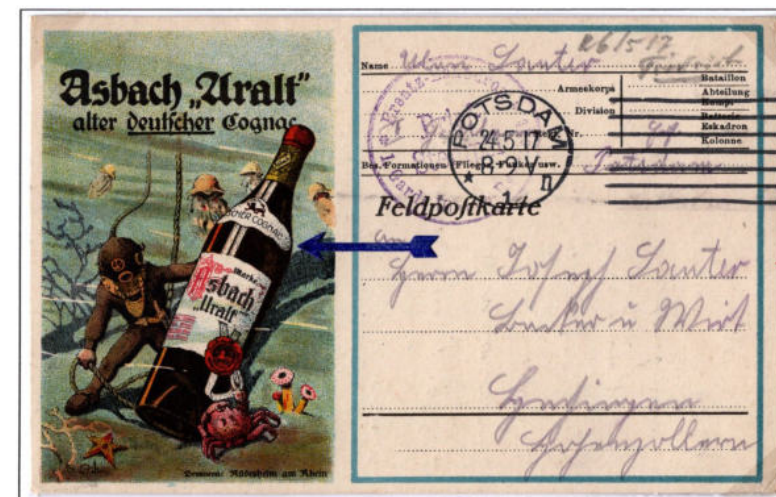 Asbach „Uralt"
alter deutscher Cognac
DEUTSCHER COGNAC
Marke
Asbach
„Uralt"
Brennerei: Rüdesheim am Rhein
26/5 17
Name
Sauter
Armeekorps
Division
Regt. Nr.
Bataillon
Abteilung
Komp.
Batterie
Eskadron
Kolonne
Bes. Formationen (Flieger, Funker usw.
Potsdam
POTSDAM
24.5.17
8-9 V
1 n
Feldpostkarte
An
Herrn Josef Sauter
u Wirt
Hechingen
Hohenzollern